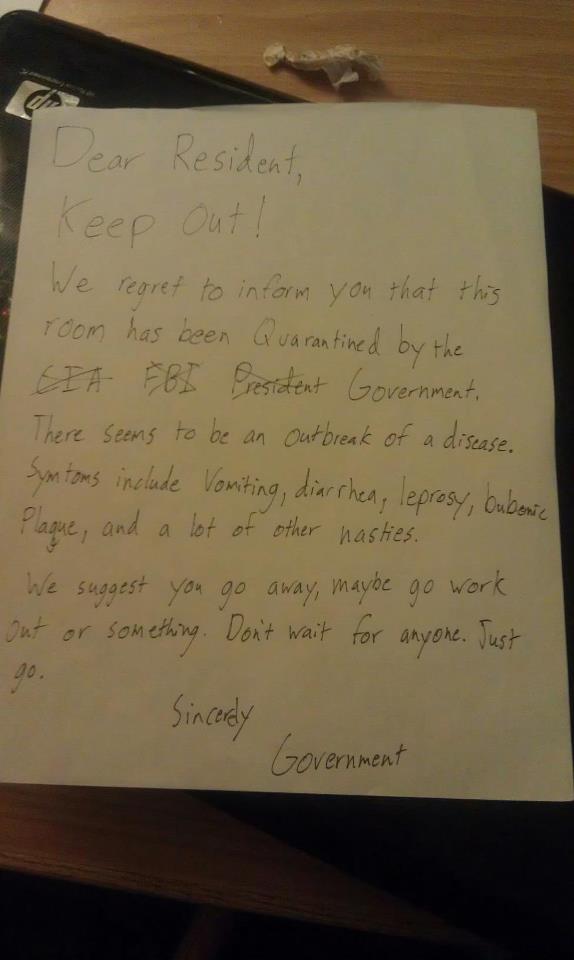 hp
Dear Resident,
Keep Out!
We regret to inform you that this
room has been Quarantined by the
CIA FBI President Government.
There seems to be an outbreak of a disease.
Symtoms include Vomiting, diarrhea, leprosy, bubonic
Plague, and a lot of other nasties.
We suggest you go away, maybe go work
out or something. Don't wait for anyone. Just
go.
Sincerely
Government